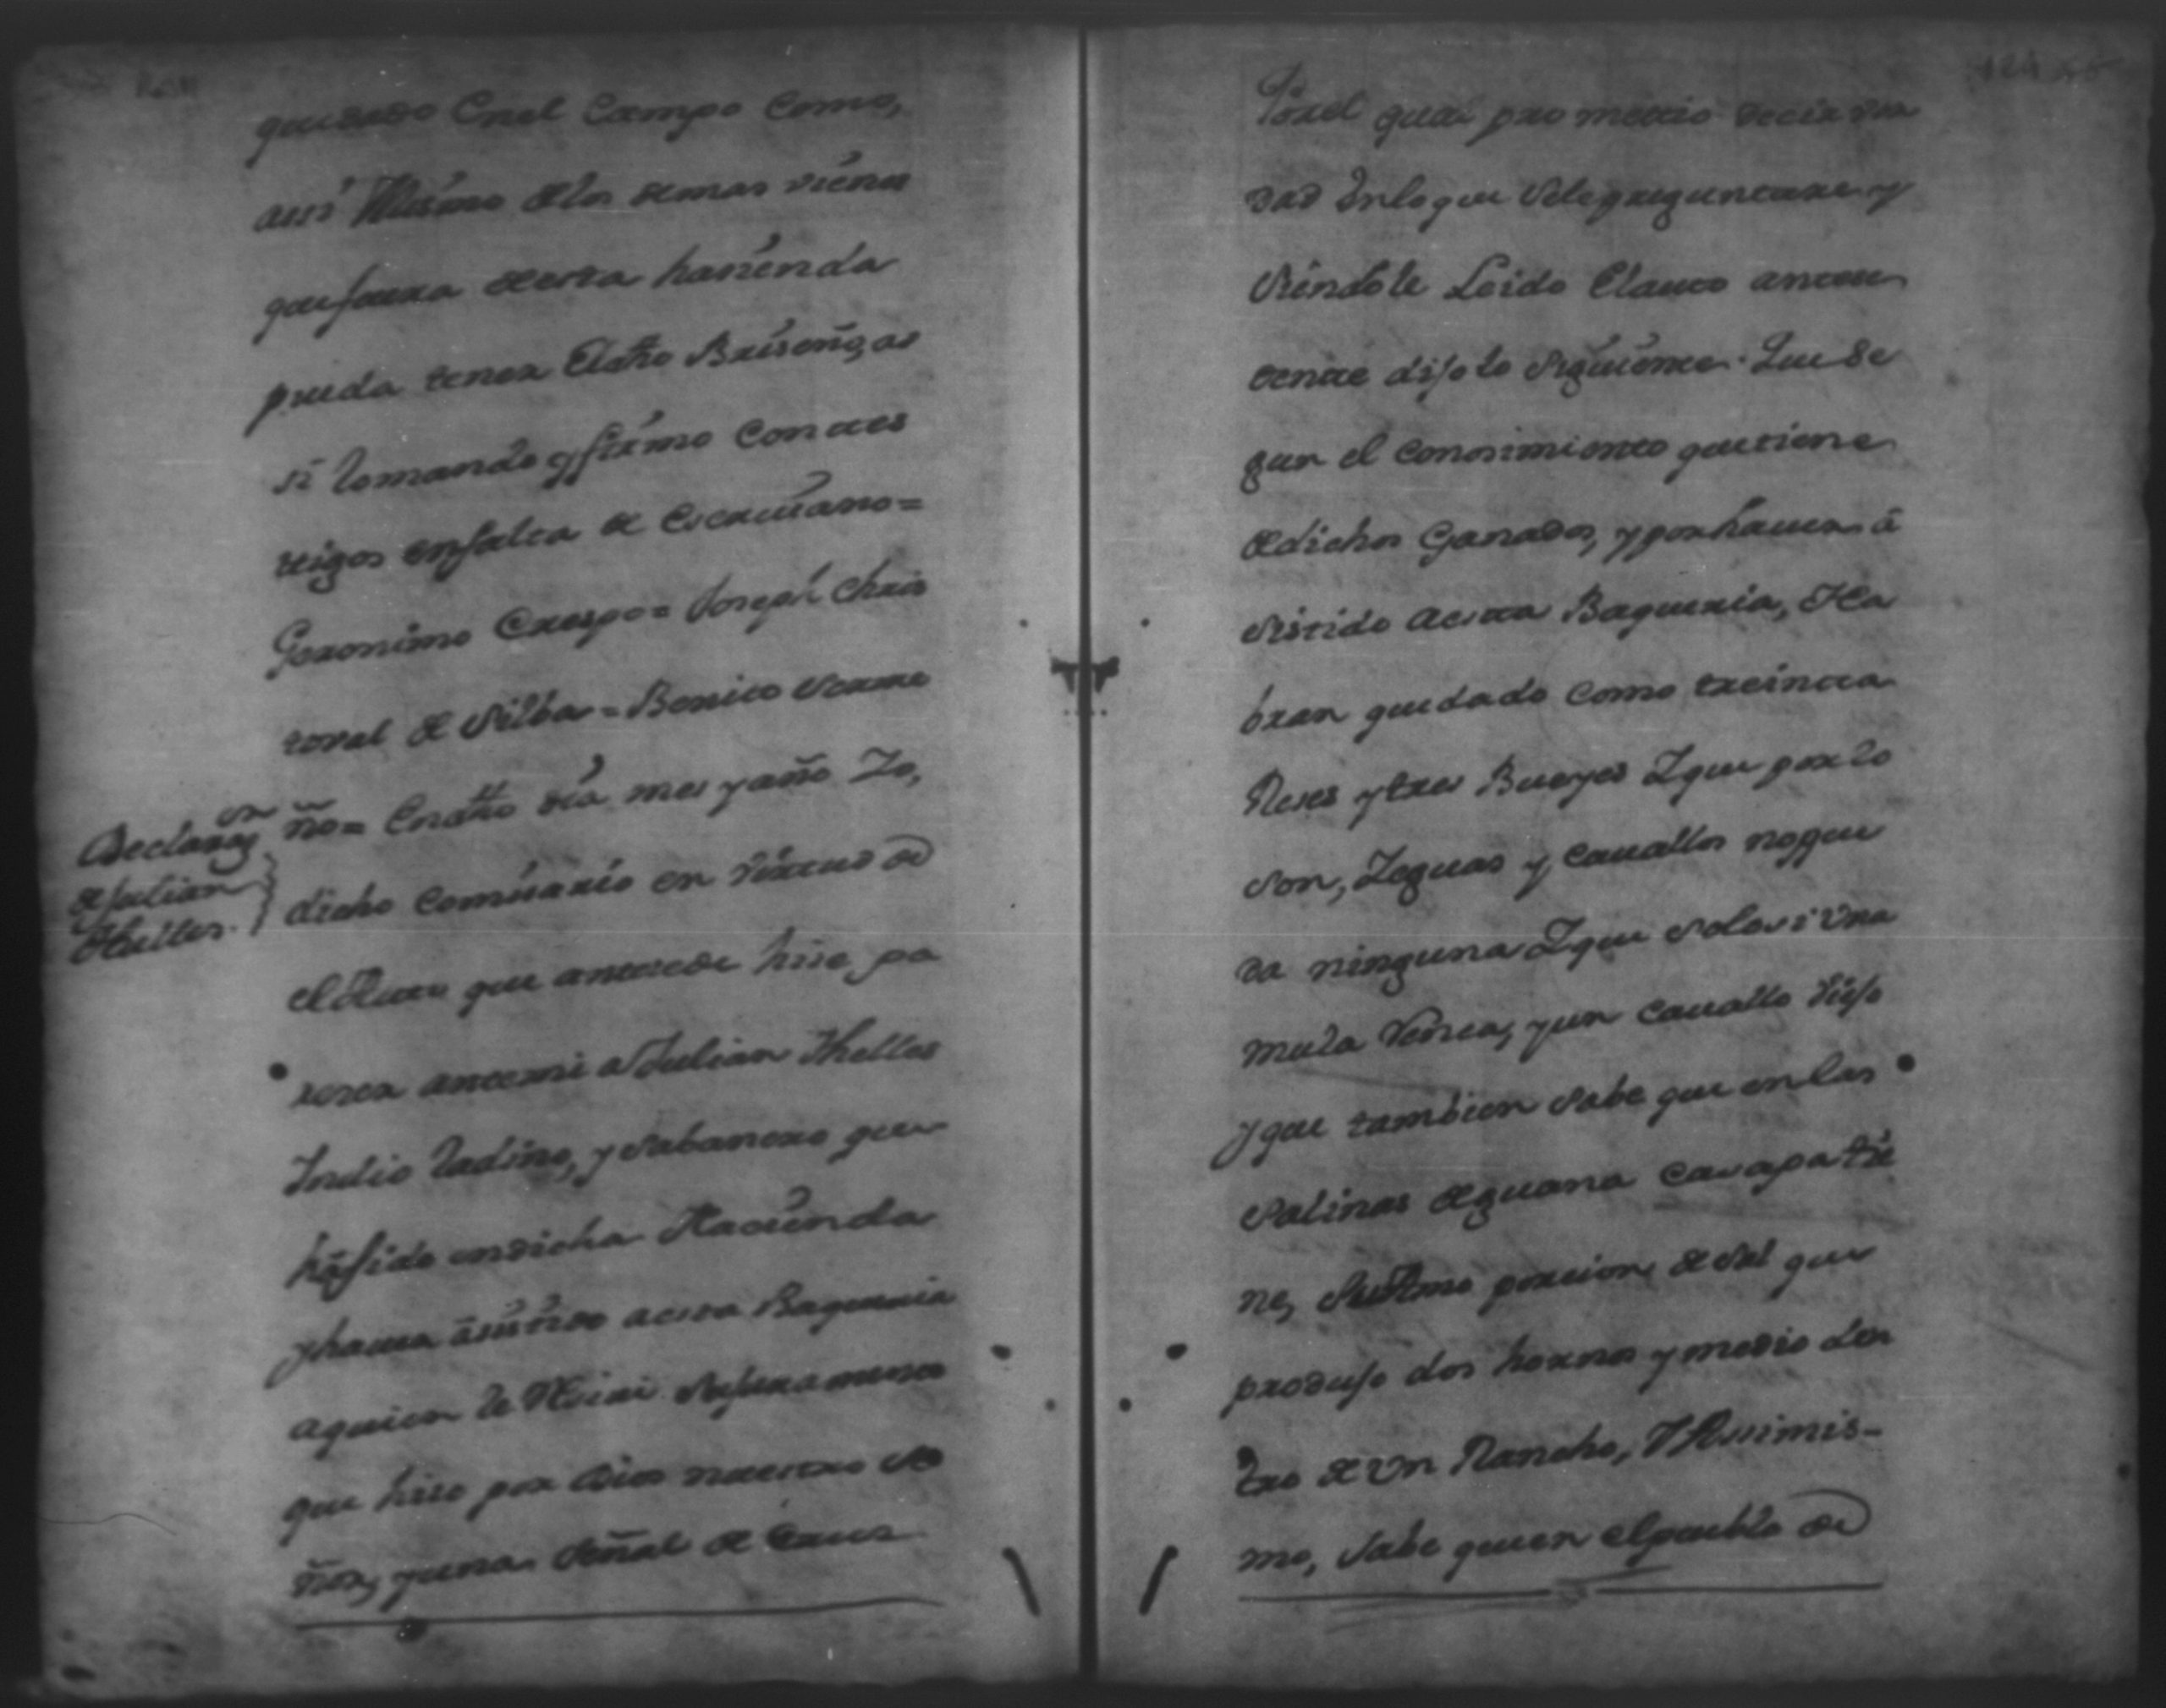 quedado Enel Campo como,
assi Mismo de los demas vienes
que fuera de esta hasienda
pueda tener El dho Briseño, as
si lo mando y firmo con tes
tigos en falta de Escriuano =
Geronimo Crespo = Joseph Chris
toval de Silba = Benito Serme
Declaraçon
de Julian
thelles.
ño = En dho dia mes y año Yo,
dicho Comisario en virtud de
el Auto que antesede hise pa
reser ante mi a Julian thelles
Indio ladino, y sabanero que
ha sido en dicha Hacienda
y hauer asistido a esta Baqueria
a quien le Reciui Juramento
que hiso por Dios nuestro Se
ñor, y una señal de Cruz
Por el qual prometio decir ver
dad En lo que se le preguntare y
siendole Leido El auto ante
tenice dijo lo siguiente. Que Se
gun el conosimiento que tiene
de dichos Ganados, y por hauer a
sistido a esta Baqueria, Ha
bran quedado como treinta
Reses y tres Bueyes Y que por lo
son, Yeguas y cauallos no que
da ninguna Y que solo si Una
mula y un cauallo viejo
y que tambien sabe que en las
salinas de guana casapa tie
ne, porcion de sal que
produjo dos hornos y medio den
tro de Un Rancho, Y Asimis-
mo, Sabe que en el pueblo de